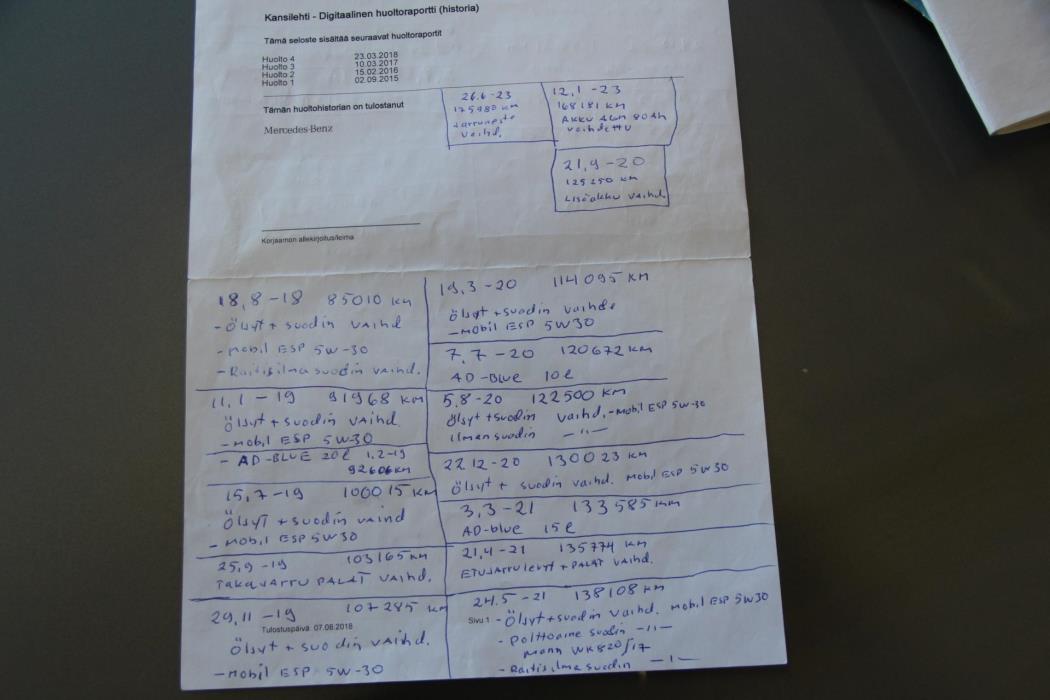 Kansilehti - Digitaalinen huoltoraportti (historia)
Tämä seloste sisältää seuraavat huoltoraportit
Huolto 4 23.03.2018
Huolto 3 10.03.2017
Huolto 2 15.02.2016
Huolto 1 02.09.2015
Tämän huoltohistorian on tulostanut
Mercedes-Benz
26.6-23
175980 KM
Jarruneste
vaihd.
12,1-23
168181 KM
AKKU AGM 80Ah
vaihdettu
21,9-20
125250 KM
Lisäakku vaihd.
Korjaamon allekirjoitus/leima
18,8-18 85010 KM
- Öljyt + suodin vaihd
- Mobil ESP 5W-30
- Raitisilmasuodin vaihd.
11,1-19 91968 KM
Öljyt + suodin vaihd.
- Mobil ESP 5W30
- AD-BLUE 20l 1,2-19
92606KM
15,7-19 100015 KM
Öljyt + suodin vaihd
- Mobil ESP 5W30
25,9-19 103165 KM
Takajarru palat vaihd.
29,11-19 107285 KM
Tulostuspäivä: 07.08.2018
Öljyt + suodin vaihd.
- Mobil ESP 5W-30
19,3-20 114095 KM
Öljyt + suodin vaihde
- Mobil ESP 5W30
7,7-20 120672 KM
AD-Blue 10l
5,8-20 122500 KM
Öljyt + suodin vaihd. - Mobil ESP 5W-30
ilmansuodin -"-
22.12-20 130023 KM
Öljyt + suodin vaihd. Mobil ESP 5W30
3,3-21 133585 KM
AD-blue 15l
21,4-21 135774 KM
Etujarrulevyt + palat vaihd.
24.5-21 138108 KM
Sivu 1 - Öljyt + suodin vaihd. Mobil ESP 5W30
- Polttoaine suodin -"-
Mann WK820/17
- Raitisilma suodin -"-